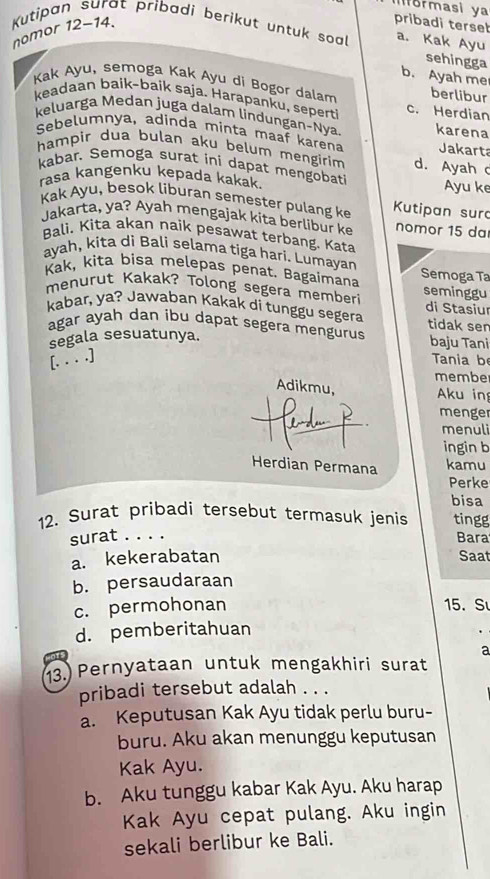 Kutipan surat pribadi berikut untuk soal
nomor 12–14.
Kak Ayu, semoga Kak Ayu di Bogor dalam
keadaan baik-baik saja. Harapanku, seperti
keluarga Medan juga dalam lindungan-Nya.
Sebelumnya, adinda minta maaf karena
hampir dua bulan aku belum mengirim
kabar. Semoga surat ini dapat mengobati
rasa kangenku kepada kakak.
Kak Ayu, besok liburan semester pulang ke
Jakarta, ya? Ayah mengajak kita berlibur ke
Bali. Kita akan naik pesawat terbang. Kata
ayah, kita di Bali selama tiga hari. Lumayan
Kak, kita bisa melepas penat. Bagaimana
menurut Kakak? Tolong segera memberi
kabar, ya? Jawaban Kakak di tunggu segera
agar ayah dan ibu dapat segera mengurus
segala sesuatunya.
[. . . .]
Adikmu,
Herdian Permana
12. Surat pribadi tersebut termasuk jenis
surat . . . .
a. kekerabatan
b. persaudaraan
c. permohonan
d. pemberitahuan
HOTS
13. Pernyataan untuk mengakhiri surat
pribadi tersebut adalah . . .
a. Keputusan Kak Ayu tidak perlu buru-
buru. Aku akan menunggu keputusan
Kak Ayu.
b. Aku tunggu kabar Kak Ayu. Aku harap
Kak Ayu cepat pulang. Aku ingin
sekali berlibur ke Bali.
ya
pribadi
a. Kak Ayu
sehingga
b. Ayah
berlibur
c. Herdian
karena
d. Ayah
Ayu ke
Kutipan
nomor 15
Semoga
seminggu
di
tidak
baju
Tania
Aku
ingin
kamu
bisa
Saat
15.
a